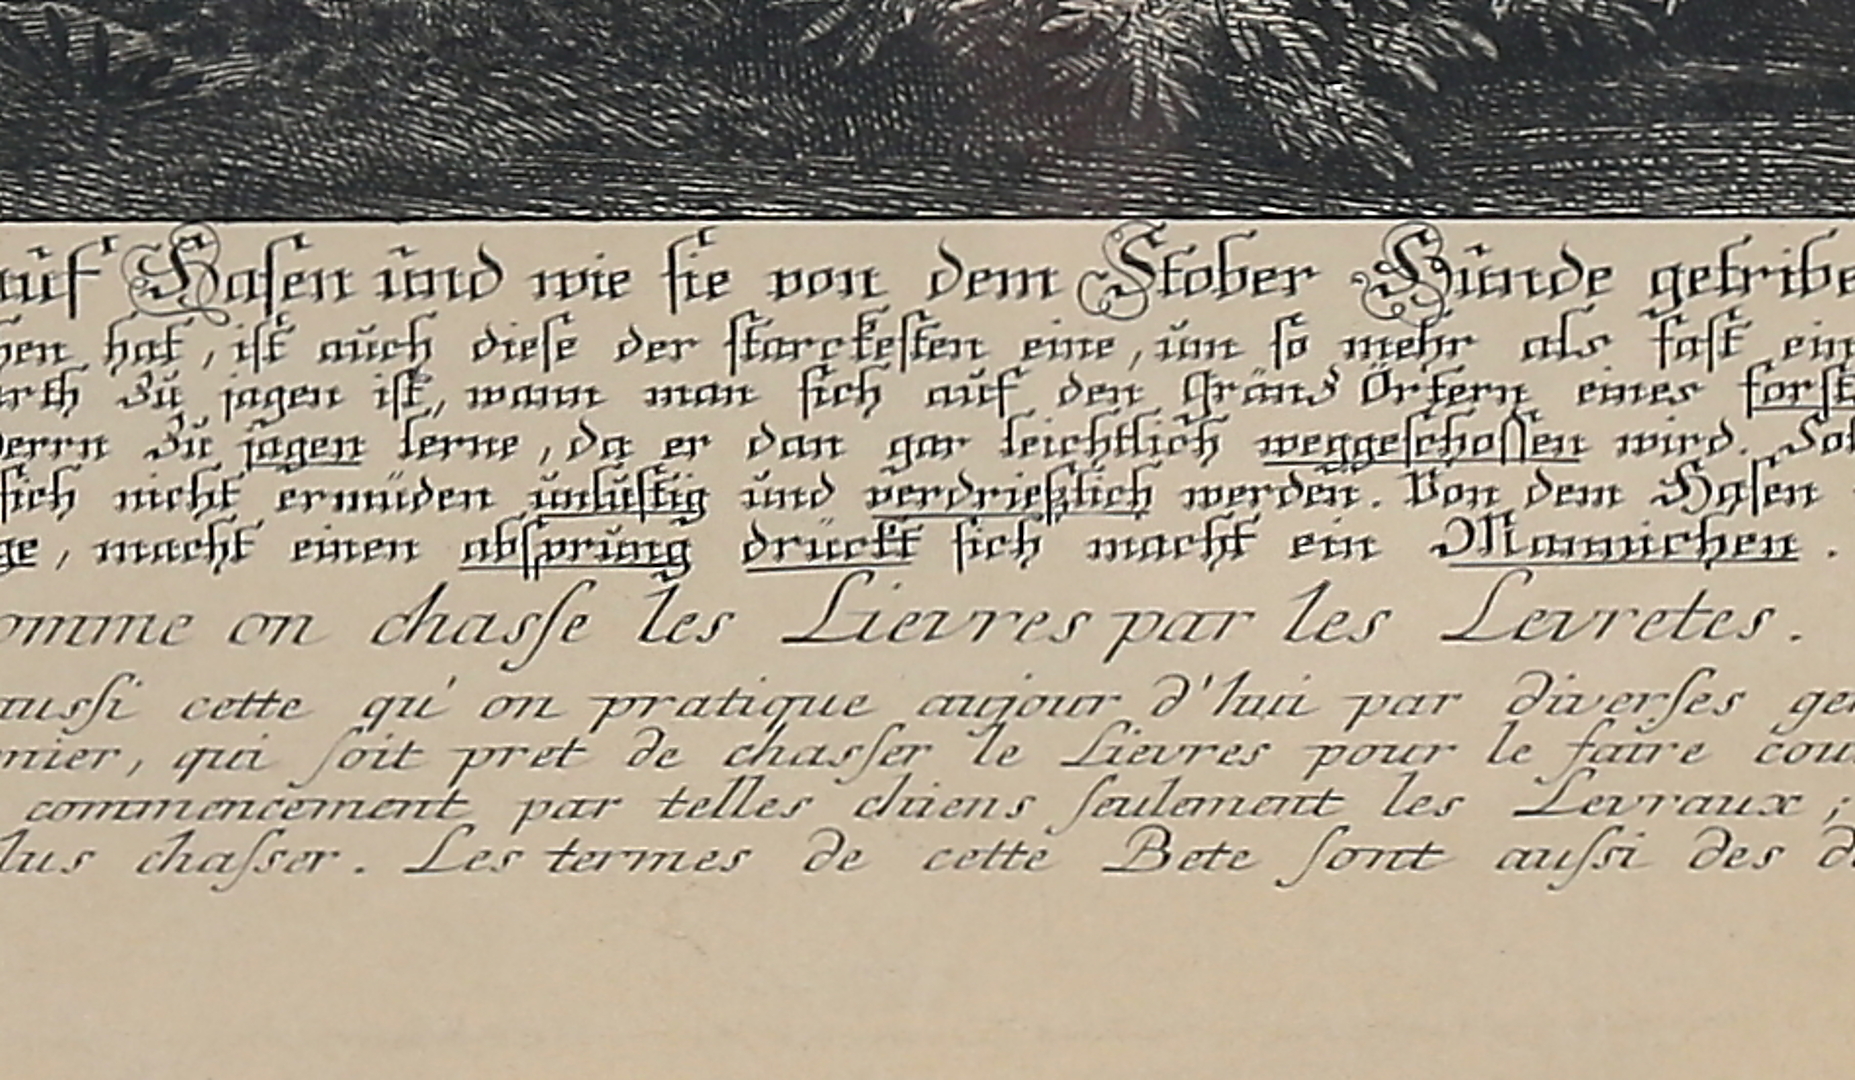 auf Hasen und wie sie von dem Stober Hunde getribe
hen hat, ist auch diese der starckesten eine, um so mehr als fast ein
rth zu jagen ist, wann man sich auf den Gränz Örtern eines forst
herrn zu jagen lerne, da er dan gar leichtlich weggeschossen wird. Sol
sich nicht ermüden unlustig und verdrießlich werden. Von dem Hasen
ge, macht einen absprung drückt sich macht ein Mannichen.
omme on chasse les Lievres par les Levretes.
aussi cette qu' on pratique aujour d'hui par diverses ge
nier, qui soit pret de chasser le Lievres pour le faire cou
commencement par telles chiens seulement les Levraux;
lus chasser. Les termes de cette Bete sont aussi des d